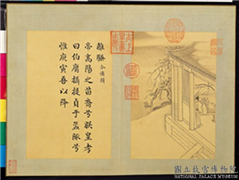 離騷
帝高陽之苗裔兮朕皇考
曰伯庸攝提貞于孟陬兮
惟庚寅吾以降
國立故宮博物院
NATIONAL PALACE MUSEUM